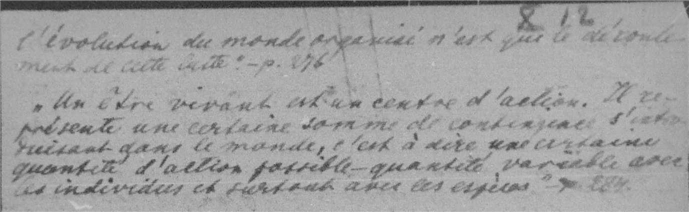 8 12
l'évolution du monde organisé n'est que le déroule-
ment de cette lutte". – p. 276
„Un être vivant est un centre d'action. Il re-
présente une certaine somme de contingence s'intro-
duisant dans le monde, c'est à dire une certaine
quantité d'action possible – quantité variable avec
les individus et surtout avec les espèces" – p. 284.